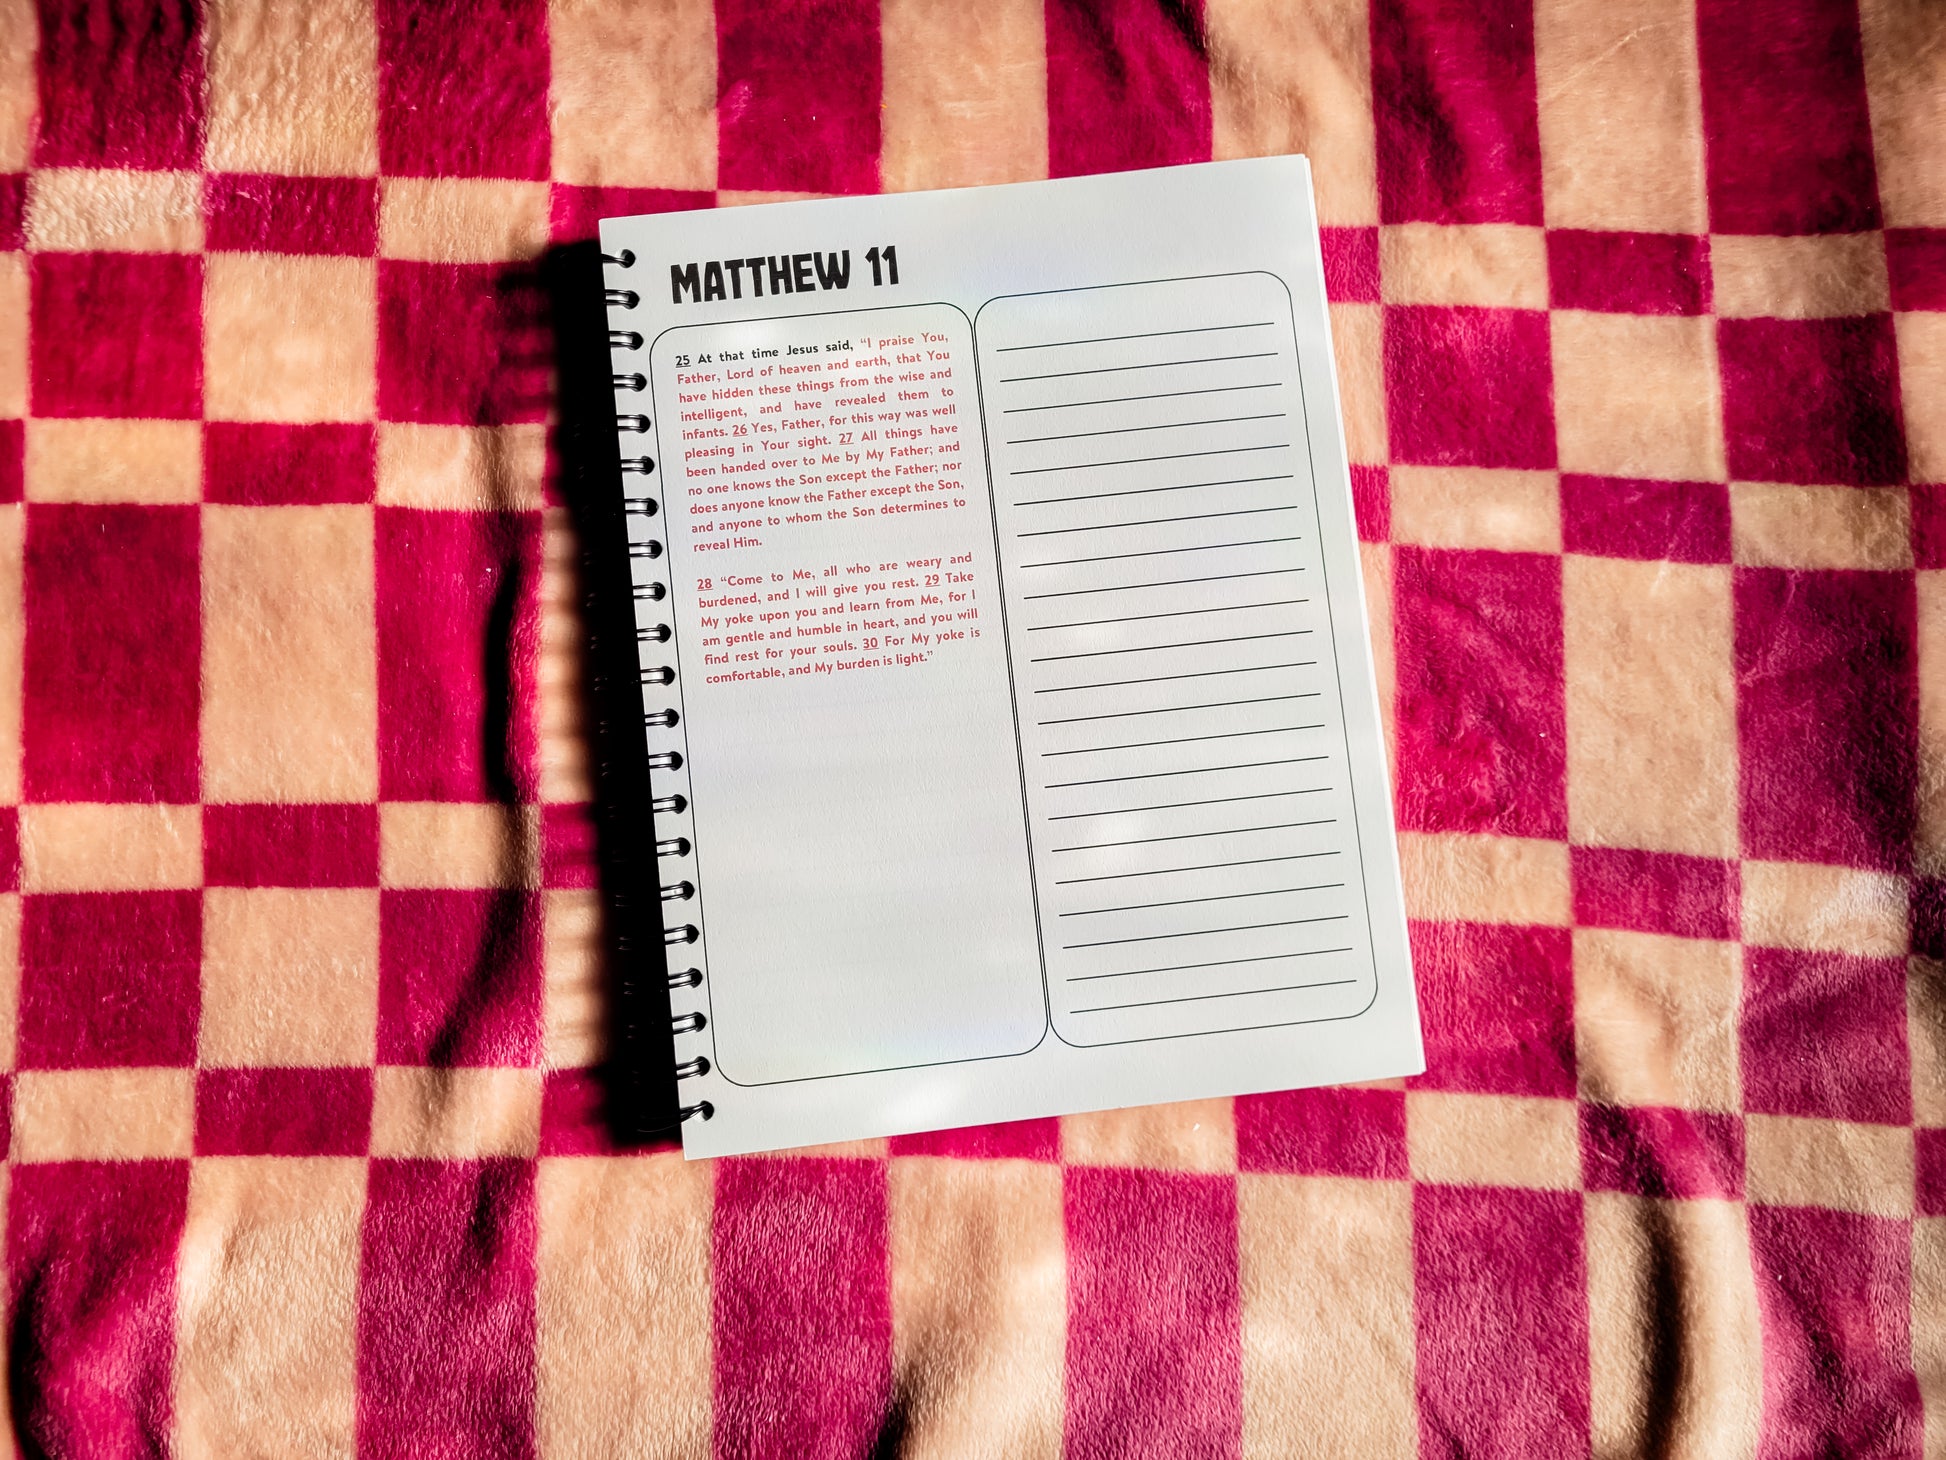 MATTHEW 11
25 At that time Jesus said, “I praise You,
Father, Lord of heaven and earth, that You
have hidden these things from the wise and
intelligent, and have revealed them to
infants. 26 Yes, Father, for this way was well
pleasing in Your sight. 27 All things have
been handed over to Me by My Father; and
no one knows the Son except the Father; nor
does anyone know the Father except the Son,
and anyone to whom the Son determines to
reveal Him.
28 “Come to Me, all who are weary and
burdened, and I will give you rest. 29 Take
My yoke upon you and learn from Me, for I
am gentle and humble in heart, and you will
find rest for your souls. 30 For My yoke is
comfortable, and My burden is light.”